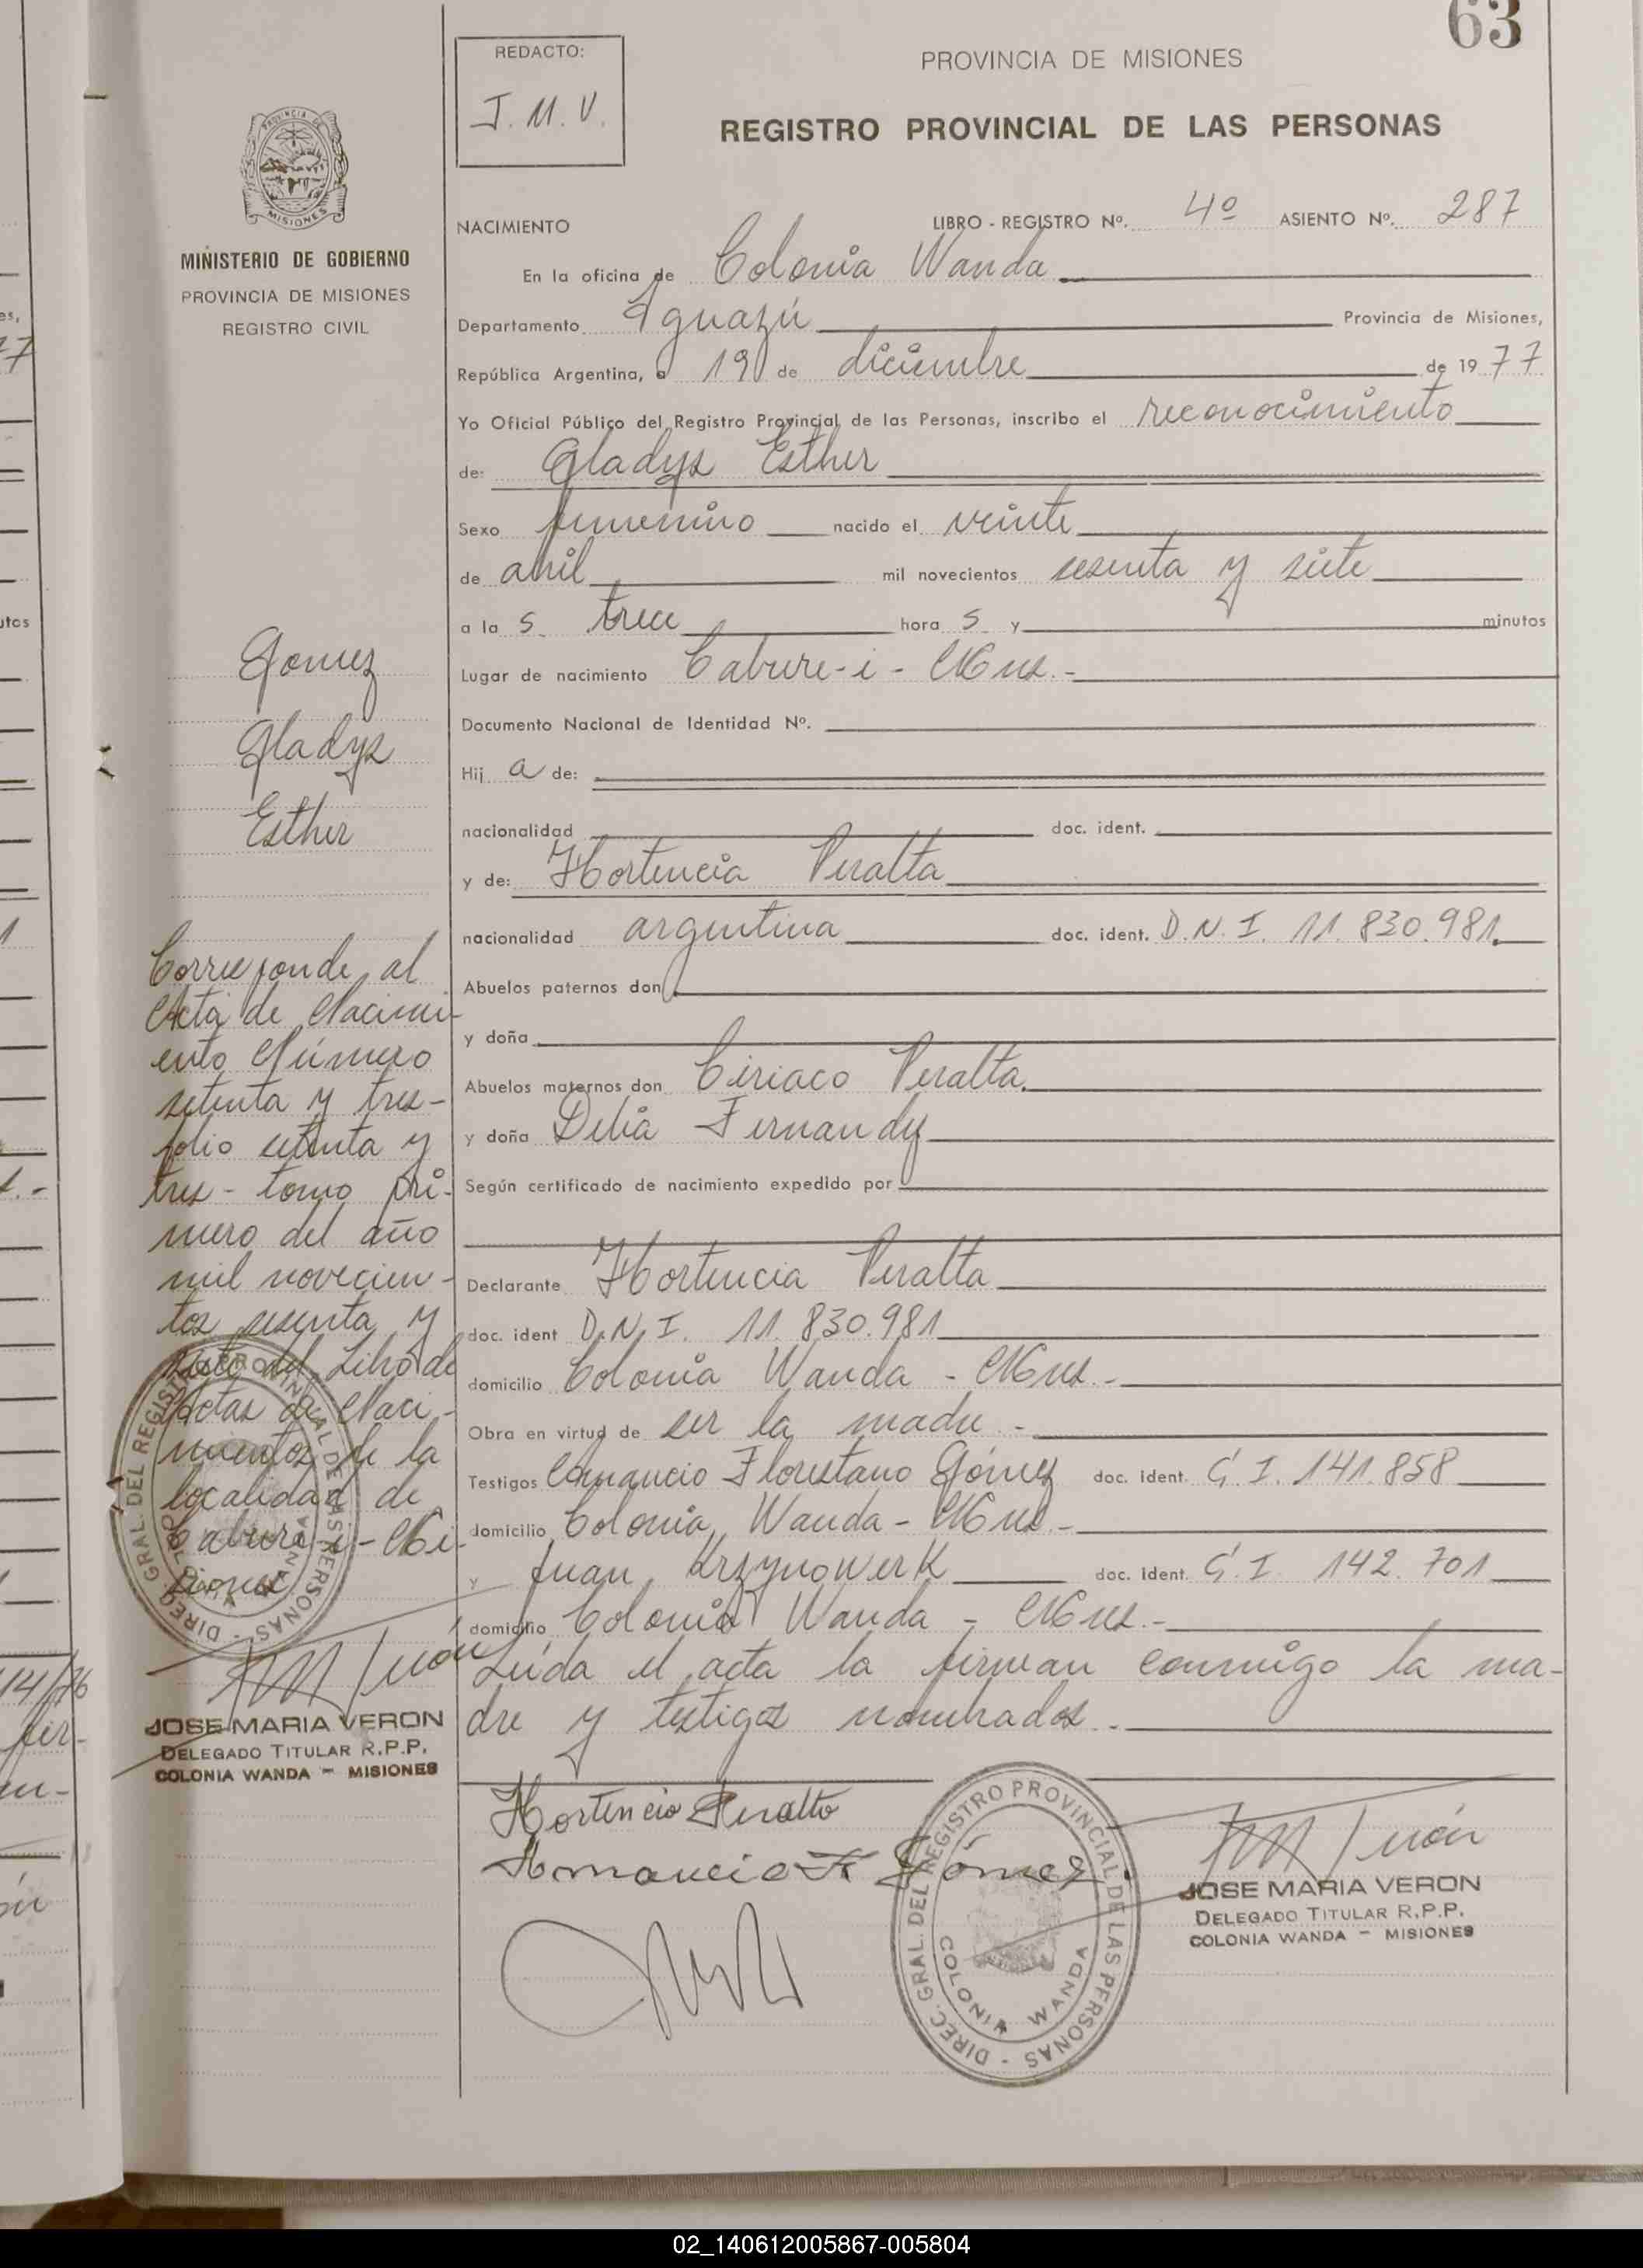 63
REDACTO:
J. M. V.
PROVINCIA DE MISIONES
REGISTRO PROVINCIAL DE LAS PERSONAS
PROVINCIA DE
MISIONES
MINISTERIO DE GOBIERNO
PROVINCIA DE MISIONES
REGISTRO CIVIL
NACIMIENTO LIBRO - REGISTRO Nº. 4º ASIENTO Nº. 287
En la oficina de Colonia Wanda
Departamento Iguazú Provincia de Misiones,
República Argentina, a 19 de diciembre de 19 77
Yo Oficial Público del Registro Provincial de las Personas, inscribo el reconocimiento
de: Gladys Esther
Sexo femenino nacido el veinte
de abril mil novecientos sesenta y siete
a la s trece hora s y minutos
Lugar de nacimiento Cabure-i - Mnes.-
Documento Nacional de Identidad Nº.
Hij a de:
nacionalidad doc. ident.
y de: Hortencia Peralta
nacionalidad argentina doc. ident. D.N.I. 11.830.981.
Abuelos paternos don
y doña
Abuelos maternos don Ciriaco Peralta.
y doña Delia Fernandez
Según certificado de nacimiento expedido por
Declarante Hortencia Peralta
doc. ident D.N.I. 11.830.981
domicilio Colonia Wanda - Mnes.-
Obra en virtud de ser la madre.-
Testigos Amancio Florestano Gómez doc. ident. C.I. 141.858
domicilio Colonia Wanda - Mnes.-
y Juan Krzynowerk doc. ident. C.I. 142.701
domicilio Colonia Wanda - Mnes.-
Leida el acta la firman conmigo la ma-
dre y testigos nombrados.-
Gomez
Gladys
Esther
Corresponde al
Acta de Nacimi-
ento Número
setenta y tres-
folio setenta y
tres - tomo pri-
mero del año
mil novecien-
tos sesenta y
siete del Libro de
Actas de Naci-
mientos de la
localidad de
Cabure-i-Mi-
siones
DIREC. GRAL. DEL REGISTRO PROVINCIAL DE LAS PERSONAS
COLONIA WANDA
JOSE MARIA VERON
DELEGADO TITULAR R.P.P.
COLONIA WANDA - MISIONES
Hortencia Peralta
Amancio F Gómez.
DIREC. GRAL. DEL REGISTRO PROVINCIAL DE LAS PERSONAS
COLONIA WANDA
JOSE MARIA VERON
DELEGADO TITULAR R.P.P.
COLONIA WANDA - MISIONES
02_140612005867-005804